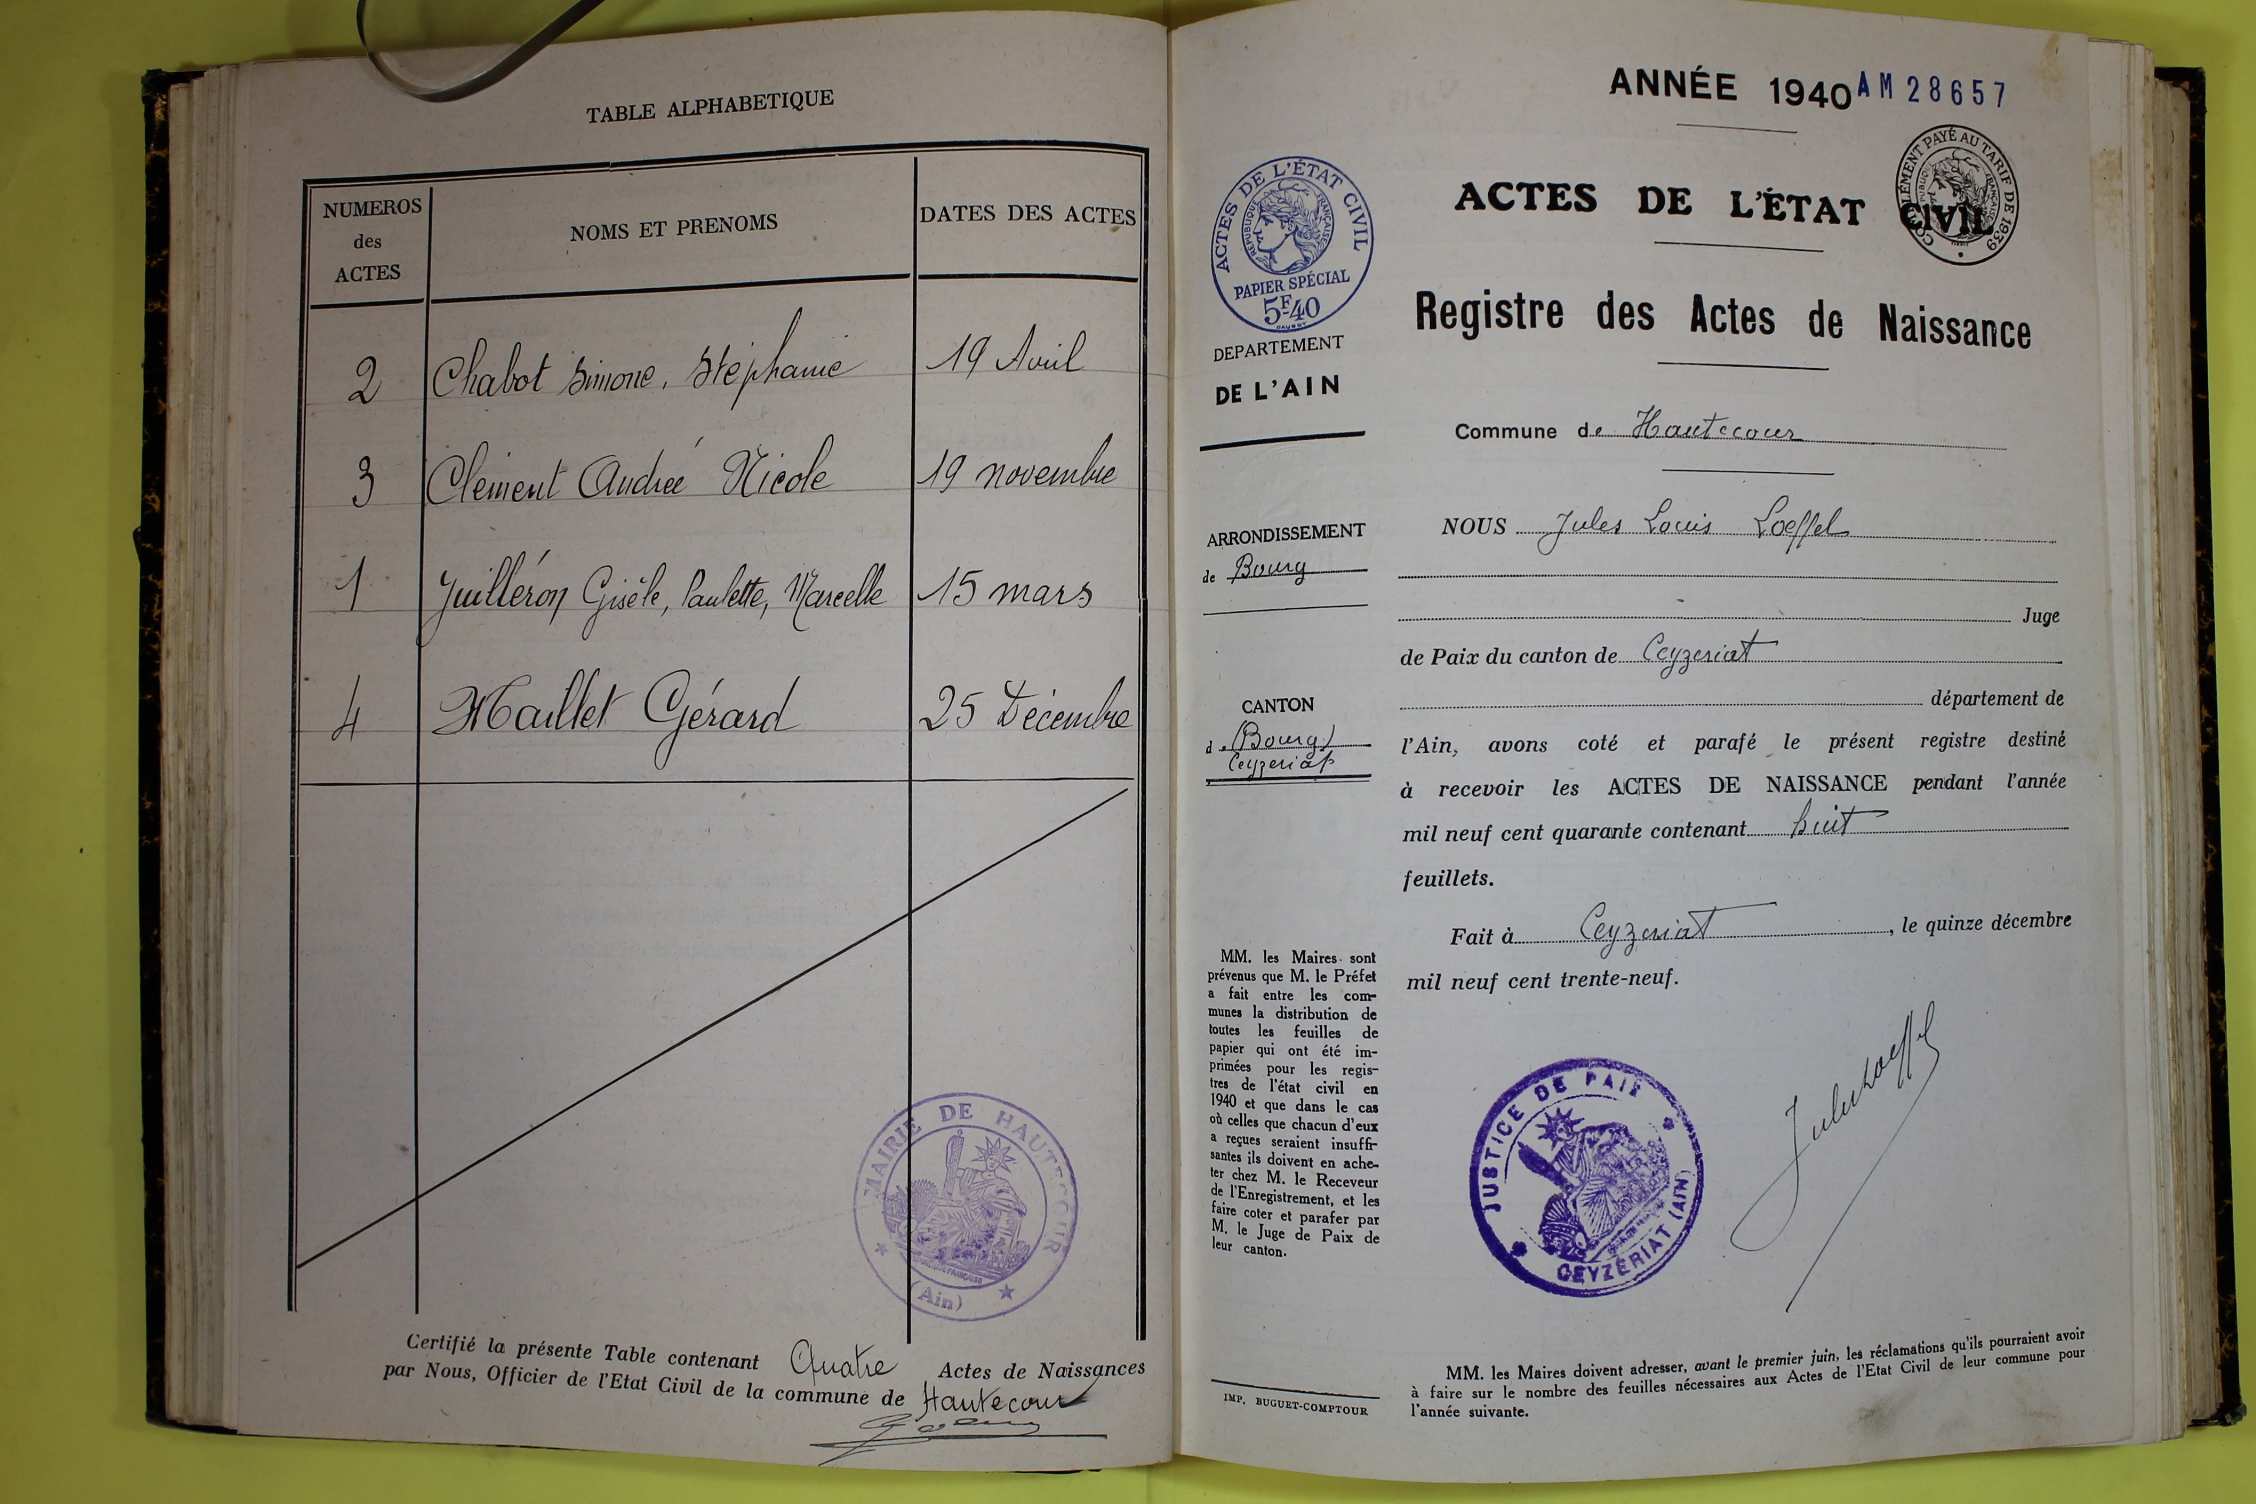 TABLE ALPHABETIQUE
NUMEROS
des
ACTES
NOMS ET PRENOMS
DATES DES ACTES
2 Chabot Simone, Stéphanie 19 Avril
3 Clément Andrée Nicole 19 novembre
1 Juilléron Gisèle, Paulette, Marcelle 15 mars
4 Maillet Gérard 25 Décembre
MAIRIE DE HAUTECOUR
(Ain)
Certifié la présente Table contenant Quatre Actes de Naissances
par Nous, Officier de l'Etat Civil de la commune de Hautecour
ANNÉE 1940 AM 28657
ACTES DE L'ÉTAT CIVIL
COMPLÉMENT PAYÉ AU TARIF DE 1939
RÉPUBLIQUE FRANÇAISE
ACTES DE L'ÉTAT CIVIL
RÉPUBLIQUE FRANÇAISE
PAPIER SPÉCIAL
5F40
Registre des Actes de Naissance
DEPARTEMENT
DE L'AIN
Commune de Hautecour
ARRONDISSEMENT
de Bourg
CANTON
de (Bourg)
Ceyzeriat
NOUS Jules Louis Loeffel
Juge
de Paix du canton de Ceyzeriat
département de
l'Ain, avons coté et parafé le présent registre destiné
à recevoir les ACTES DE NAISSANCE pendant l'année
mil neuf cent quarante contenant huit
feuillets.
Fait à Ceyzeriat, le quinze décembre
mil neuf cent trente-neuf.
MM. les Maires sont
prévenus que M. le Préfet
a fait entre les com-
munes la distribution de
toutes les feuilles de
papier qui ont été im-
primées pour les regis-
tres de l'état civil en
1940 et que dans le cas
où celles que chacun d'eux
a reçues seraient insuffi-
santes ils doivent en ache-
ter chez M. le Receveur
de l'Enregistrement, et les
faire coter et parafer par
M. le Juge de Paix de
leur canton.
JUSTICE DE PAIX
CEYZÉRIAT (AIN)
Jules Loeffel
IMP. BUGUET-COMPTOUR
MM. les Maires doivent adresser, avant le premier juin, les réclamations qu'ils pourraient avoir
à faire sur le nombre des feuilles nécessaires aux Actes de l'Etat Civil de leur commune pour
l'année suivante.